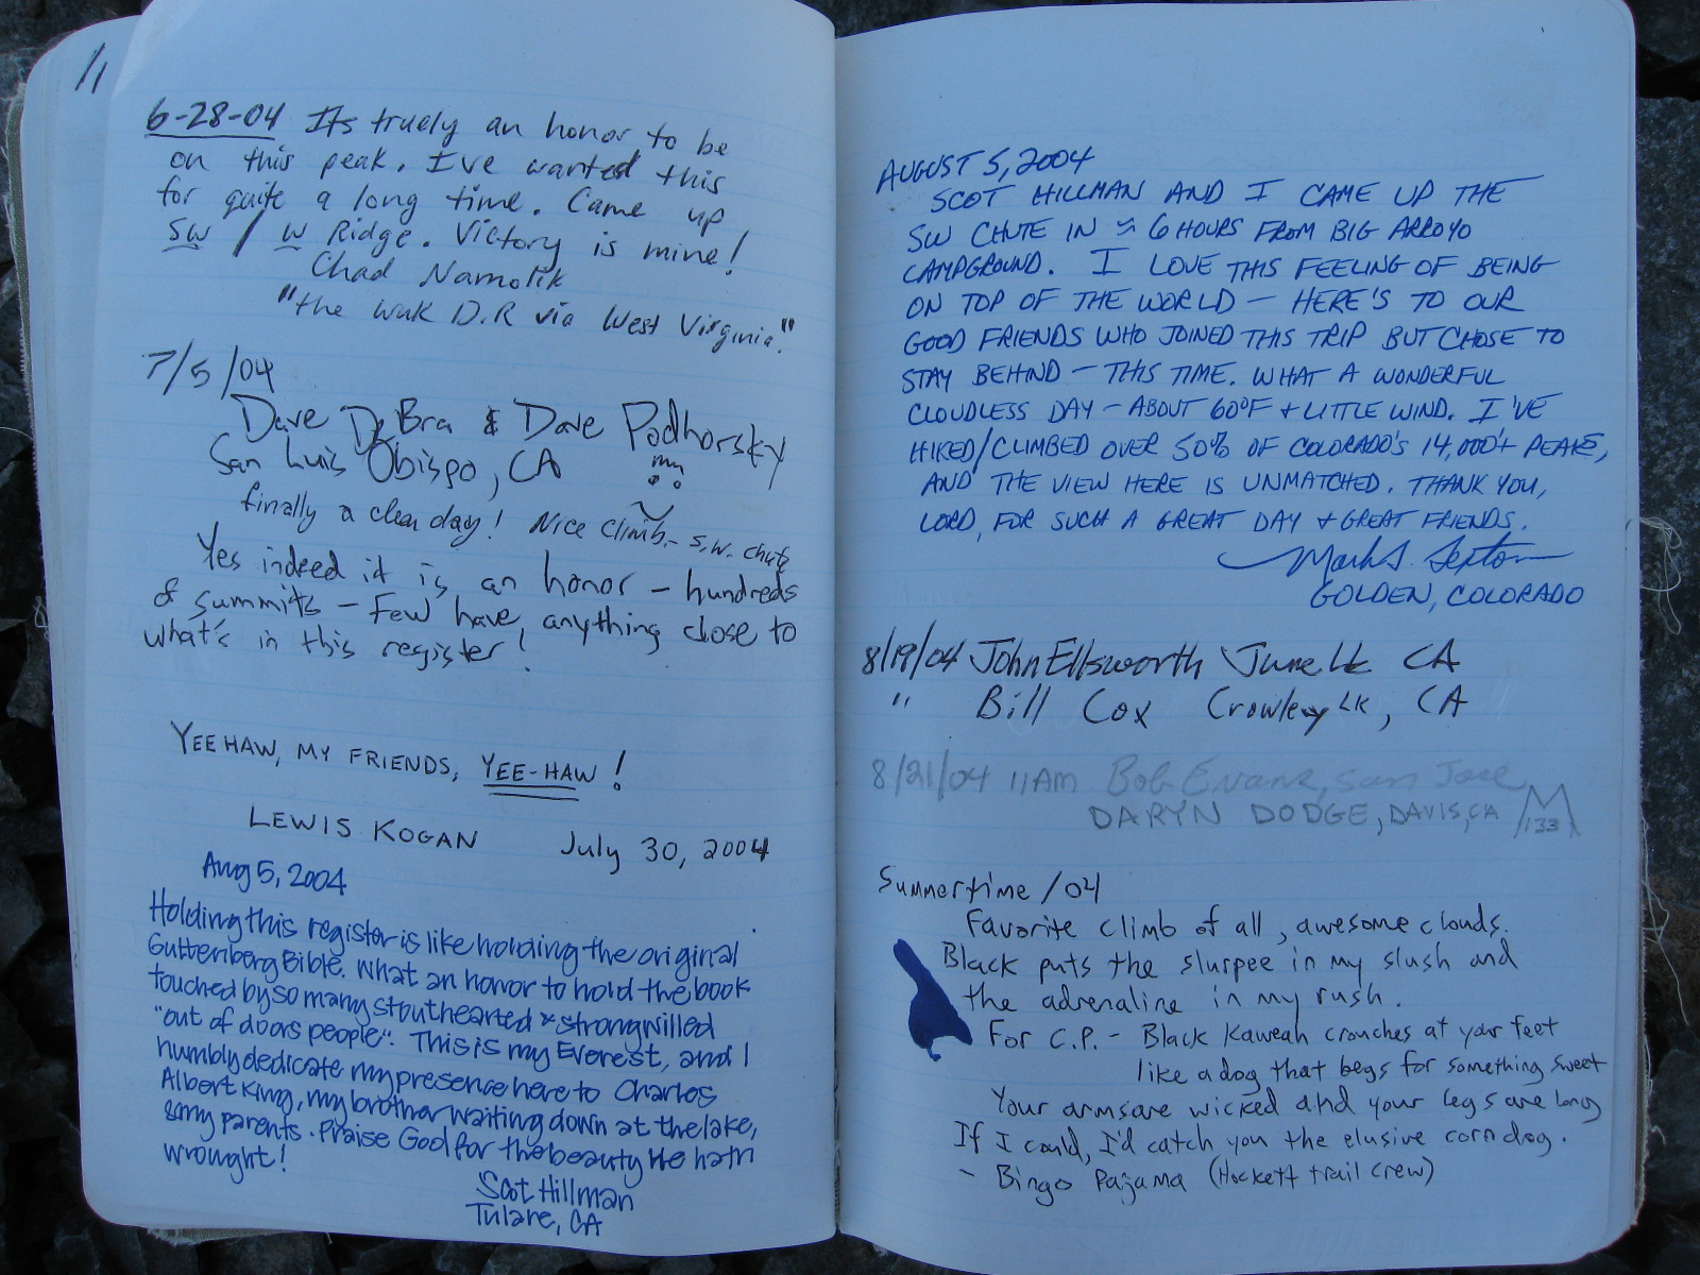 11
6-28-04 Its truely an honor to be
on this peak. I've wanted this
for quite a long time. Came up
SW / W Ridge. Victory is mine!
Chad Namolik
"the wuk D.R via West Virginia."
7/5/04
Dave DeBra & Dave Podhorsky
San Luis Obispo, CA
finally a clear day! Nice climb - S.W. chute
Yes indeed it is an honor - hundreds
of summits - Few have anything close to
what's in this register!
YEEHAW, MY FRIENDS, YEE-HAW!
LEWIS KOGAN July 30, 2004
Aug 5, 2004
Holding this register is like holding the original
Guttenberg Bible. What an honor to hold the book
touched by so many stouthearted & strongwilled
"out of doors people". This is my Everest, and I
humbly dedicate my presence here to Charles
Albert King, my brother waiting down at the lake,
& my parents. Praise God for the beauty He hath
wrought!
Scot Hillman
Tulare, CA
AUGUST 5, 2004
SCOT HILLMAN AND I CAME UP THE
SW CHUTE IN ≈ 6 HOURS FROM BIG ARROYO
CAMPGROUND. I LOVE THIS FEELING OF BEING
ON TOP OF THE WORLD — HERE'S TO OUR
GOOD FRIENDS WHO JOINED THIS TRIP BUT CHOSE TO
STAY BEHIND — THIS TIME. WHAT A WONDERFUL
CLOUDLESS DAY - ABOUT 60°F + LITTLE WIND. I'VE
HIKED/CLIMBED OVER 50% OF COLORADO'S 14,000'+ PEAKS,
AND THE VIEW HERE IS UNMATCHED. THANK YOU,
LORD, FOR SUCH A GREAT DAY + GREAT FRIENDS.
Mark S. Sexton
GOLDEN, COLORADO
8/19/04 John Ellsworth June Lk CA
" Bill Cox Crowley LK, CA
8/21/04 11AM Bob Evans, San Jose
DARYN DODGE, DAVIS, CA 133
Summertime /04
Favorite climb of all, awesome clouds.
Black puts the slurpee in my slush and
the adrenaline in my rush.
For C.P. - Black Kaweah crouches at your feet
like a dog that begs for something sweet
Your arms are wicked and your legs are long
If I could, I'd catch you the elusive corn dog.
- Bingo Pajama (Hockett trail crew)